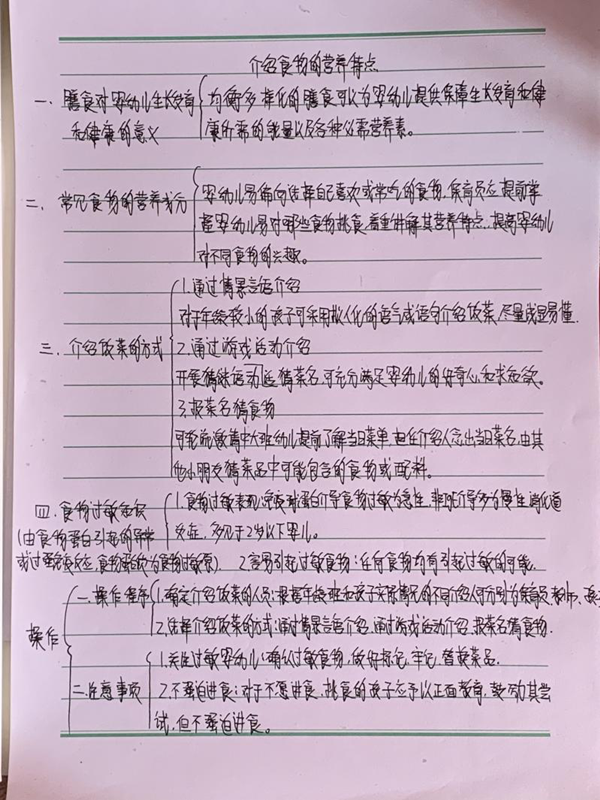 介绍食物的营养特点
一、膳食对婴幼儿生长发育
和健康的意义
均衡多样化的膳食可以为婴幼儿提供保障生长发育和健
康所需的能量以及各种必需营养素。
二、常见食物的营养成分
婴幼儿易偏向选择自己喜欢或常吃的食物,保育员应提前掌
握婴幼儿易对哪些食物挑食,着重讲解其营养特点,提高婴幼儿
对不同食物的兴趣。
三、介绍饭菜的方式
1.通过情景言语介绍
对于年级较小的孩子可采用拟人化的语气或语句介绍饭菜,尽量浅显易懂.
2.通过游戏活动介绍
开展猜谜活动,猜菜名,可充分满足婴幼儿的好奇心和求知欲。
3.报菜名猜食物
可轮流邀请中大班幼儿提前了解当日菜单,担任介绍人念出当日菜名,由其
他小朋友猜菜品中可能包含的食物或配料。
四.食物过敏症状
(由食物蛋白引起的异常
或过强免疫反应,食物蛋白称为食物过敏原)
1.食物过敏表现:介导食物过敏为急性,非 介导多为慢性,消化道
炎症,多见于2岁以下婴儿。
2.容易引起过敏食物:任何食物均有引起过敏的可能.
操作
一.操作程序
1.确定介绍饭菜的人员:根据年级班和孩子实际情况的不同介绍人可分别为保育员、教师、孩子
2.选择介绍饭菜的方式:通过情景言语介绍,通过游戏活动介绍,报菜名猜食物.
二.注意事项
1.关注过敏婴幼儿:确认过敏食物,做好标记,牢记,替换菜品.
2.不强迫进食:对于不愿进食,挑食的孩子应予以正面教育,鼓励其尝
试,但不强迫进食。